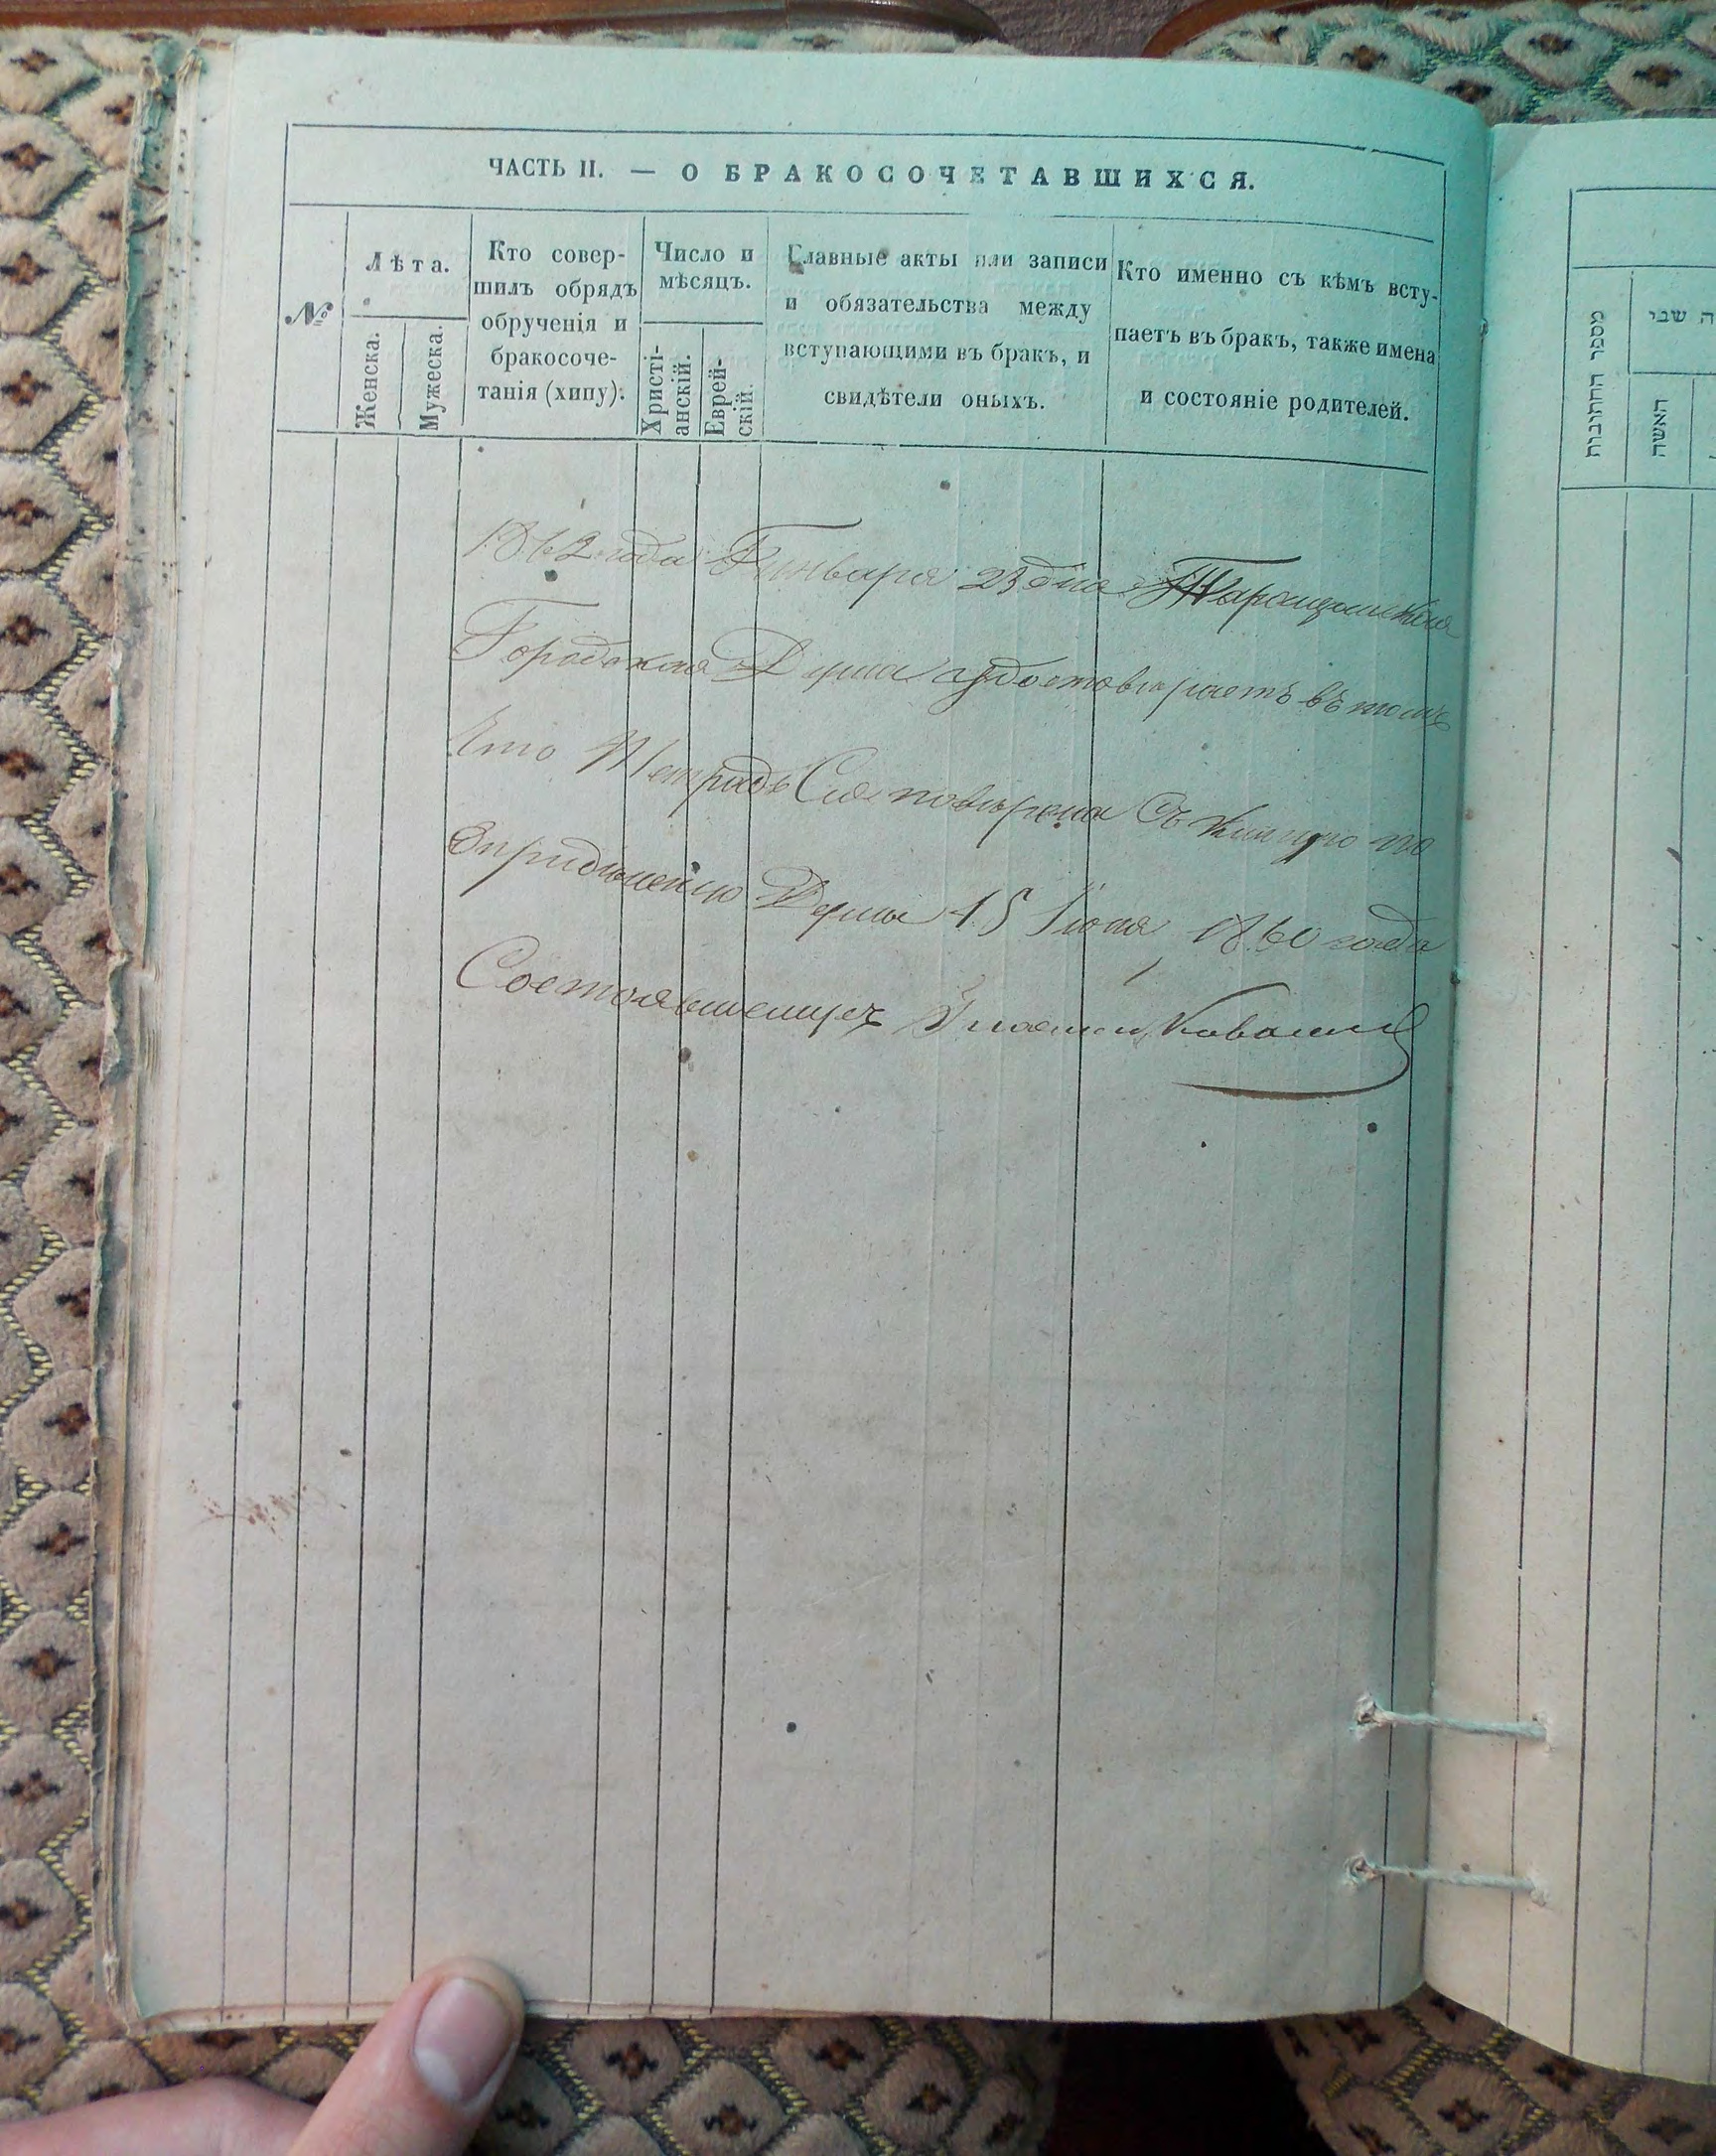 ЧАСТЬ II. — О БРАКОСОЧЕТАВШИХСЯ.
№
Лѣта.
Женска.
Мужеска.
Кто совер-
шилъ обрядъ
обрученія и
бракосоче-
танія (хипу).
Число и
мѣсяцъ.
Христі-
анскій.
Еврей-
скій.
Главные акты или записи
и обязательства между
вступающими въ бракъ, и
свидѣтели оныхъ.
Кто именно съ кѣмъ всту-
паетъ въ бракъ, также имена
и состояніе родителей.
1862 года Генваря 23 дня Таращанская
Городская Дума удостовѣряетъ въ томъ
Что Тетрадь Сія повѣрена Съ книгою по
Опридѣленію Думы 15 Іюня 1860 года
Состоявшемуся Гласный
מספר החתונות
ה שני
האשה